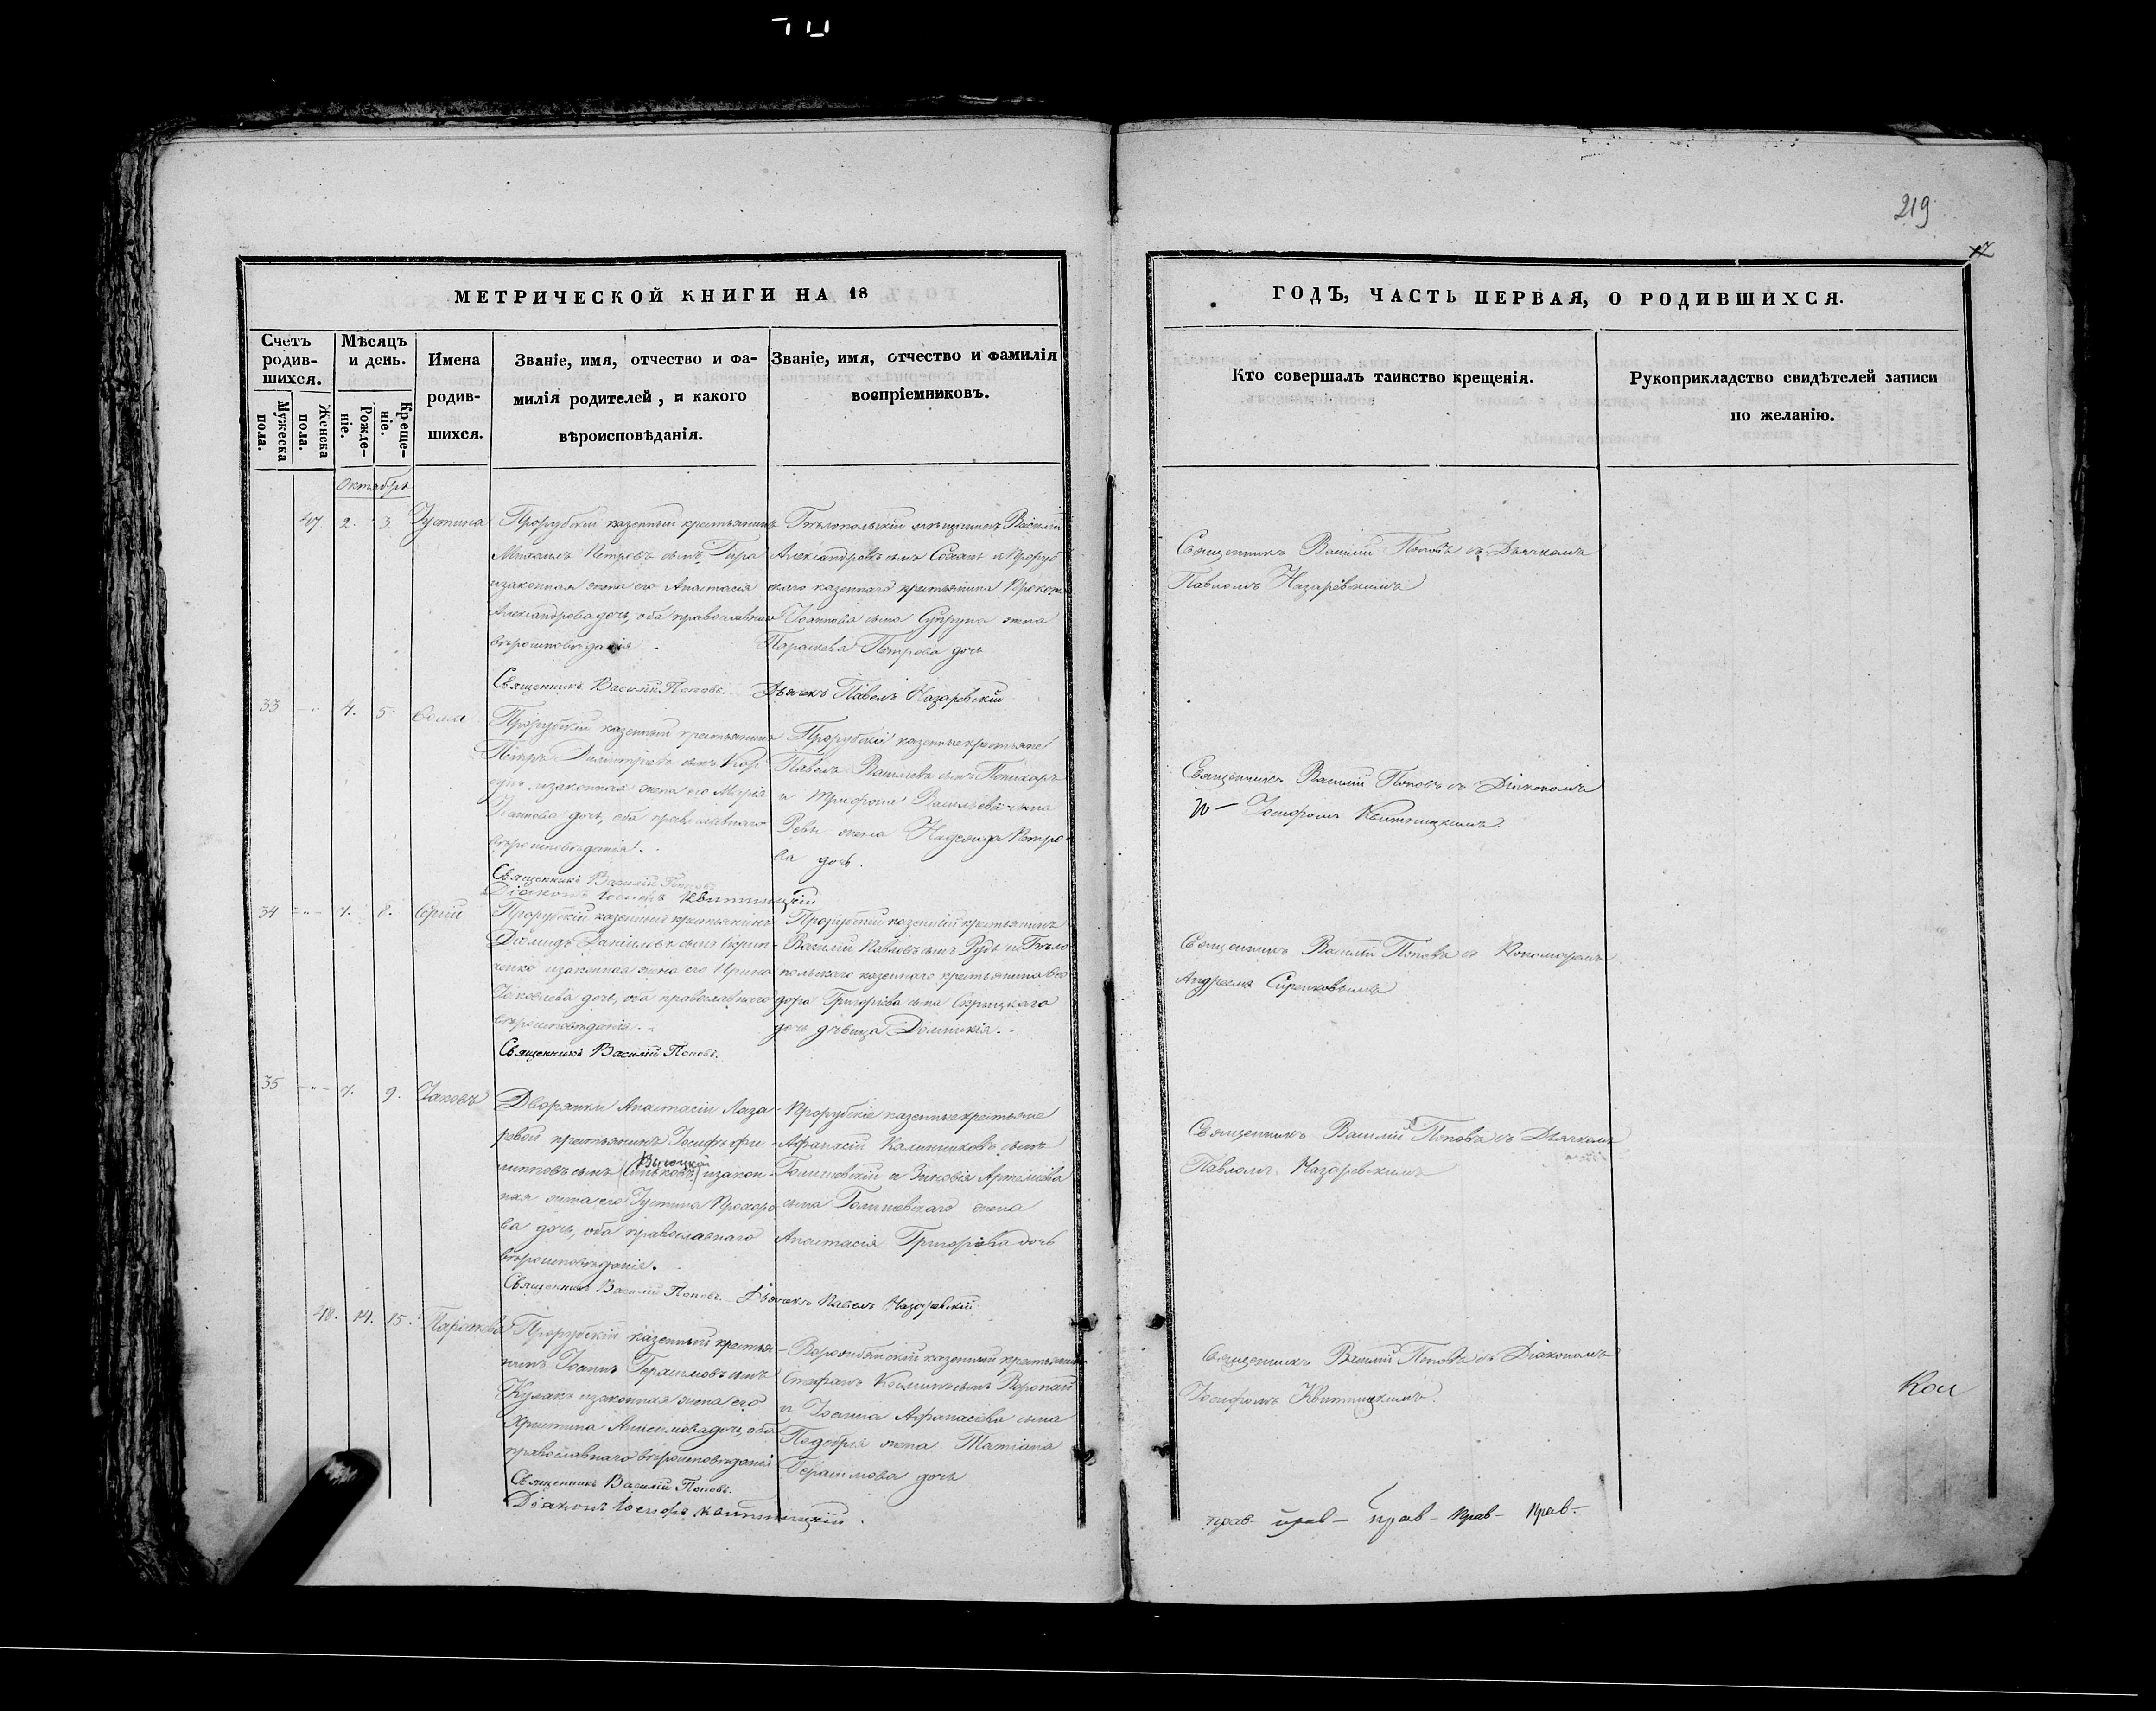 219
МЕТРИЧЕСКОЙ КНИГИ НА 18
Счетъ родив-шихся.
Мужеска пола.
Женска пола.
Мѣсяцъ и день.
Рожде-ніе.
Креще-ніе.
Имена родив-шихся.
Званіе, имя, отчество и фа-
милія родителей, и какого
вѣроисповѣданія.
Званіе, имя, отчество и фамилія
воспріемниковъ.
Октябрь
47. 2. 3. Іустина
Прорубскій казенный крестьянинъ
Михаилъ Петровъ сынъ Гира
и законная жена его Анастасія
Александрова дочь, оба православнаго
вѣроисповѣданія.
Бѣлопольскій мѣщанинъ Василій
Александровъ сынъ и Проруб
скаго казеннаго крестьянина
Іоаннова сына Супруна жена
Параскева Петрова дочь
Священникъ Василій Поповъ. Дьячекъ Павелъ Назаревскій
33 4. 5. Ѳома
Прорубскій казенный крестьянинъ
Петръ Димитріевъ сынъ
и законная жена его Марія
Іоаннова дочь, оба православнаго
вѣроисповѣданія.
Прорубскіе казенные крестьяне
Павелъ Васильевъ сынъ
и Трифона Васильева сына
Ревы жена Надежда Петро-
ва дочь.
Священникъ Василій Поповъ
Діаконъ Іосифъ Квитницкій
34 7. 8. Сергій
Прорубскій казенный крестьянинъ
Діомидъ Даніиловъ сынъ Скрип-
ченко и законная жена его Ирина
Іаковлева дочь, оба православнаго
вѣроисповѣданія.
Прорубскій казенный крестьянинъ
Василій Павловъ сынъ Рудь и Бѣло
польскаго казеннаго крестьянина Ѳео
дора Григоріева сына
дочь дѣвица Домникія.
Священникъ Василій Поповъ.
35 7. 9. Іаковъ
Дворянки Анастасіи Лаза-
ревой крестьянинъ Іосифъ Фи-
липповъ сынъ и закон-
ная жена его Іустина Прохоро
ва дочь, оба православнаго
вѣроисповѣданія.
Прорубскіе казенные крестьяне
Афанасій Калинниковъ сынъ
Голишевскій и Зиновія Артеміева
сына Голишевскаго жена
Анастасія Григоріева дочь
Священникъ Василій Поповъ. Дьячекъ Павелъ Назаревскій
48. 14. 15. Параскева
Прорубскій казенный крестья-
нинъ Іоаннъ Герасимовъ сынъ
Кулакъ и законная жена его
Христина Анисимова дочь, оба
православнаго вѣроисповѣданія
Ворожбянскій казенный крестьянинъ
Стефанъ Косминъ сынъ Воропай
и Іоанна Афанасіева сына
жена Татіана
Герасимова дочь
Священникъ Василій Поповъ.
Діаконъ Іосифъ Квитницкій.
ГОДЪ, ЧАСТЬ ПЕРВАЯ, О РОДИВШИХСЯ.
Кто совершалъ таинство крещенія.
Рукоприкладство свидѣтелей записи
по желанію.
Священникъ Василій Поповъ съ Дьячкомъ
Павломъ Назаревскимъ
Священникъ Василій Поповъ съ Діакономъ
Іосифомъ Квитницкимъ.
Священникъ Василій Поповъ съ Пономаремъ
Андреемъ
Священникъ Василій Поповъ съ Дьячкомъ
Павломъ Назаревскимъ
Священникъ Василій Поповъ съ Діакономъ
Іосифомъ Квитницкимъ.
Кои
прав- прав- прав- прав- прав-